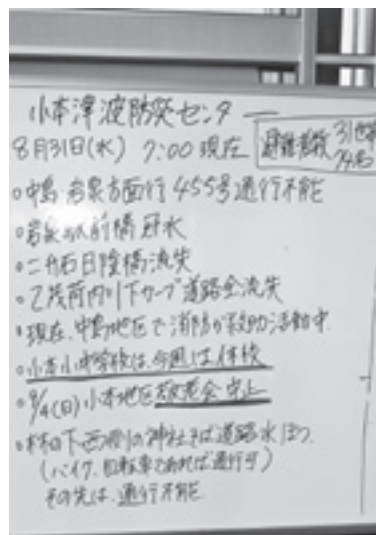 小本津波防災センター
8月31日(水) 7:00現在
避難者数 31世帯
74名
○中島・岩泉方面行 455号通行不能
○岩泉 前橋 冠水
○二升石日陰橋流失
○乙茂 内 下カーブ道路全流失
・現在、中島地区で消防が救助活動中
○小本小中学校は、今週は休校
○9/4(日)小本地区敬老会中止
・林の下 西側の神社そば道路水ぼつ。
(バイク、自転車であれば通行可)
その先は、通行不能